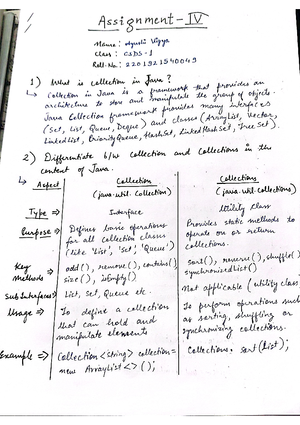 Assignment - IV
Name : Ayushi Vijya
Class : CSDS-1
Roll No: 2201921540049
1) What is collection in Java ?
↳ Collection in Java is a framework that provides an
architecture to store and manipulate the group of objects.
Java Collection framework provides many interfaces
(Set, List, Queue, Deque) and classes (ArrayList, Vector,
LinkedList, PriorityQueue, HashSet, LinkedHashSet, TreeSet).
2) Differentiate b/w collection and Collections in the
context of Java.
↳ Aspect Collection (java.util.Collection) Collections (java.util.collections)
Type ⇒ Interface Utility Class
Purpose ⇒ Defines basic operations for all Collection classes (like 'List', 'Set', 'Queue') Provides static methods to operate on or return collections.
Key Methods ⇒ add(), remove(), contains(), size(), isEmpty() sort(), reverse(), shuffle(), synchronizedList()
Sub Interfaces ⇒ List, Set, Queue etc. Not applicable (utility class)
Usage ⇒ To define a collection that can hold and manipulate elements To perform operations such as sorting, shuffling or synchronizing collections.
Example ⇒ Collection <String> collection = new ArrayList<>(); Collections. sort(list);